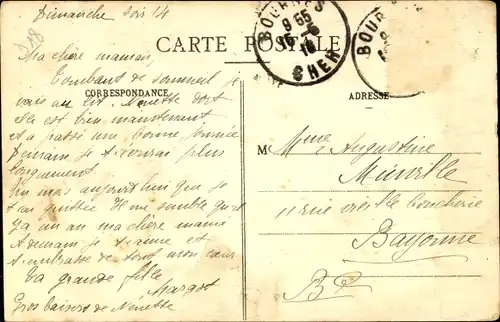 Dimanche soir 14
Ma chère maman,
Tombant de sommeil je
vais au lit. Nénette dort
et a passé une bonne journée
Demain je t'écrirai plus
longuement.
Un mois aujourd'hui que je
t'ai quittée Il me semble qu'il
ya un an ma chère mamie
A demain je t'aime et
t'embrasse de tout mon cœur
Ta grande fille
Margot
Gros baisers de Nénette
CARTE POSTALE
CORRESPONDANCE
ADRESSE
BOURGES
CHER
BOUR
Mme Augustine
11 rue vieille Boucherie
Bayonne